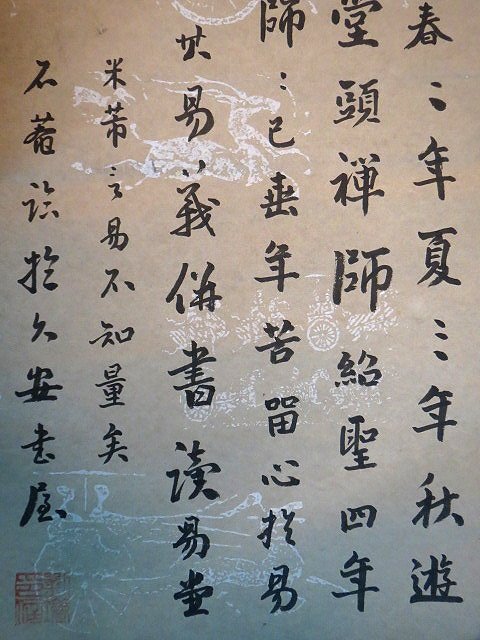 春二年夏三年秋遊
堂頭禪師紹聖四年
師二已垂年苦留心於易
其易義併書讀易堂
米芾言易不知量矣
石菴臨於久安書屋